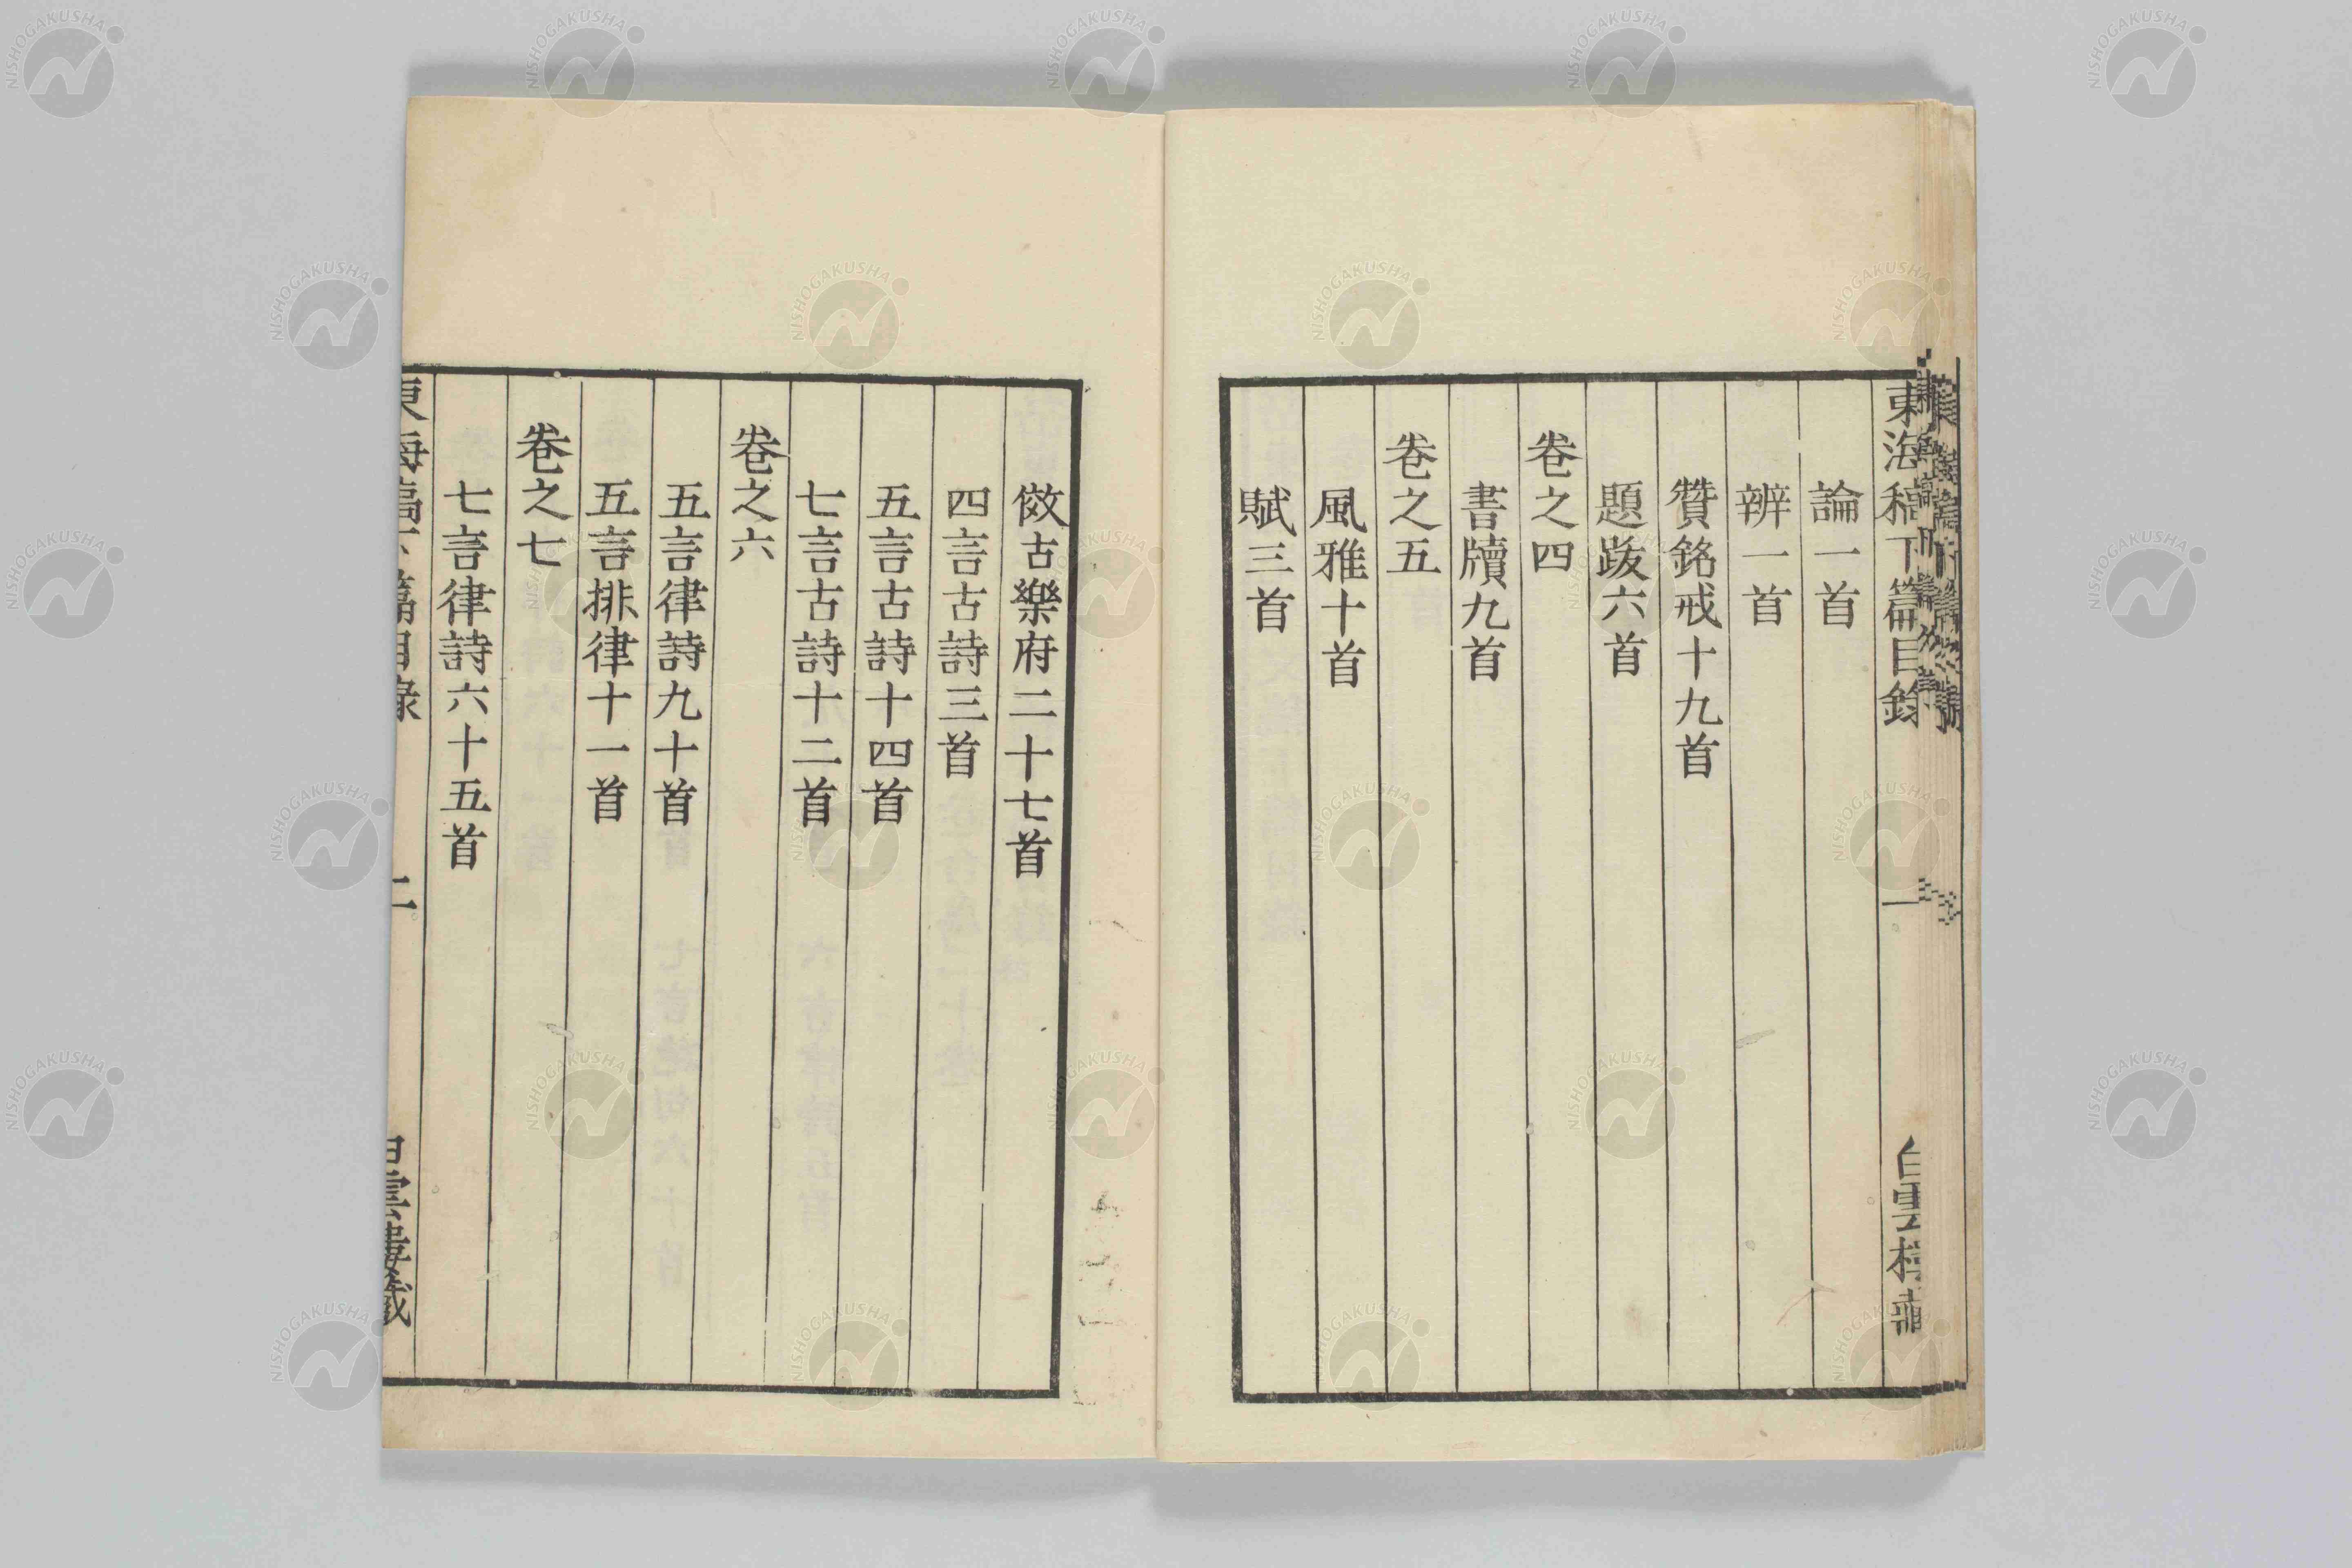 東海稿下篇目錄
一
白雲樓藏
論一首
辨一首
贊銘戒十九首
題䟦六首
卷之四
書牘九首
卷之五
風雅十首
賦三首
傚古樂府二十七首
四言古詩三首
五言古詩十四首
七言古詩十二首
卷之六
五言律詩九十首
五言排律十一首
卷之七
七言律詩六十五首
東海稿下篇目錄
二
白雲樓藏
NISHOGAKUSHA